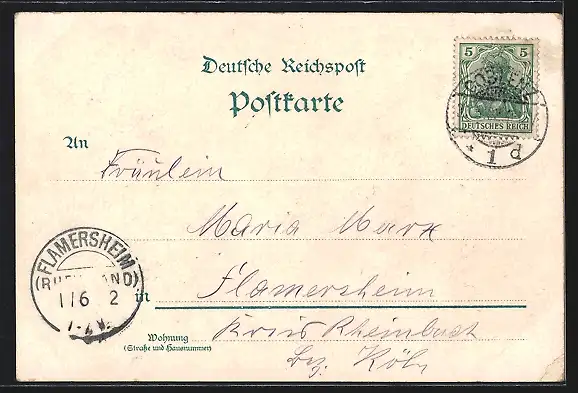 Deutsche Reichspost
Postkarte
5
DEUTSCHES REICH
* 1 d
An
Fräulein
Maria Marx
in Flamersheim
Kreis Rheinbach
Wohnung
(Straße und Hausnummer)
Bez. Köln
FLAMERSHEIM
(RHEINLAND)
1/6 2